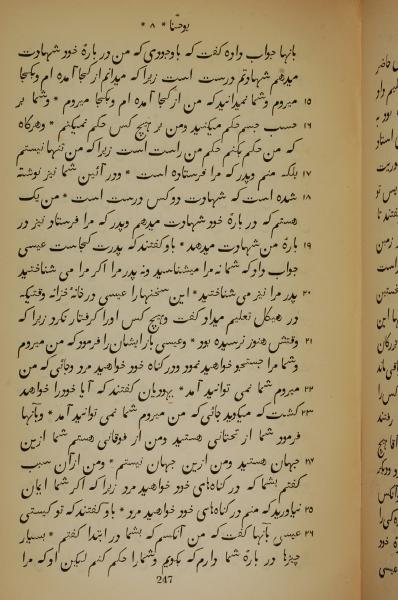 یوحنّا * ۸ *
بانها جواب داده گفت که باوجودی که من در بارهٔ خود شهادت
میدهم شهادتم درست است زیرا که میدانم از کجا آمده ام و بکجا
میروم وشما نمیدانید که من از کجا آمده ام و بکجا میروم * وشما بر ۱۵
حسب جسم حکم میکنید ومن بر هیچ کس حکم نمیکنم * وهرگاه ۱۶
که من حکم بکنم حکم من راست است زیرا که من تنها نیستم
بلکه منم وپدر که مرا فرستاده است * ودر آئین شما نیز نوشته ۱۷
شده است که شهادت دو کس درست است * من یک ۱۸
هستم که در بارهٔ خود شهادت میدهم وپدر که مرا فرستاد نیز در
بارهٔ من شهادت میدهد * باو گفتند که پدرت کجاست عیسی ۱۹
جواب داد که شما نه مرا میشناسید ونه پدر مرا اگر مرا می شناختید
پدر مرا نیز می شناختید * این سخنها را عیسی در خانهٔ خزانه وقتیکه ۲۰
در هیکل تعلیم میداد گفت وهیچ کس اورا گرفتار نکرد زیرا که
وقتش هنوز نرسیده بود * وعیسی باز ایشان را فرمود که من میروم ۲۱
وشما مرا جستجو خواهید نمود ودر گناه خود خواهید مرد وجائی که من
میروم شما نمی توانید آمد * یهودیان گفتند که آیا خود را خواهد ۲۲
کشت که میگوید جائی که من میروم شما نمی توانید آمد * وبآنها ۲۳
فرمود شما از تحتانی هستید ومن از فوقانی هستم شما ازین
جهان هستید ومن ازین جهان نیستم * ومن از آن سبب ۲۴
گفتم بشما که در گناه‌های خود خواهید مرد زیرا که اگر شما ایمان
نیاورید که منم در گناه‌های خود خواهید مرد * باو گفتند که تو کیستی ۲۵
عیسی بآنها گفت که من آنکسم که بشما در ابتدا گفتم * بسیار ۲۶
چیزها در بارهٔ شما دارم که بگویم وشما را حکم کنم لیکن او که مرا
247